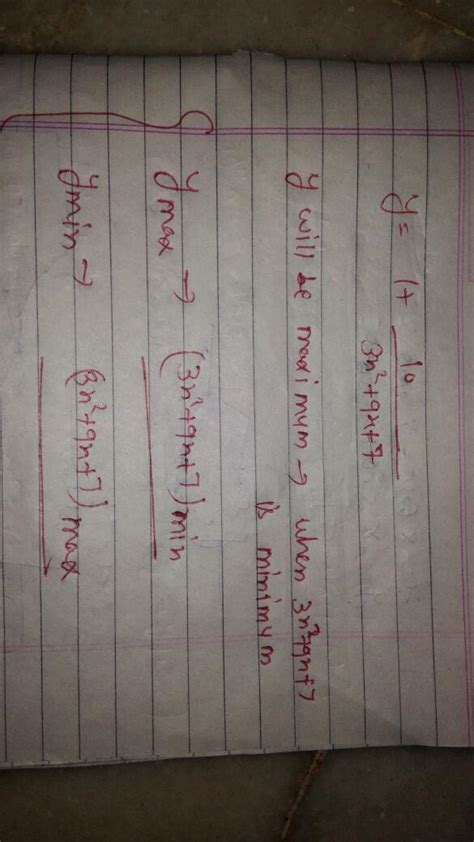 y = 1 + 10
3x²+9x+7
y will be maximum → when 3x²+9x+7
is minimum
y max → (3x²+9x+7) min
y min → (3x²+9x+7) max